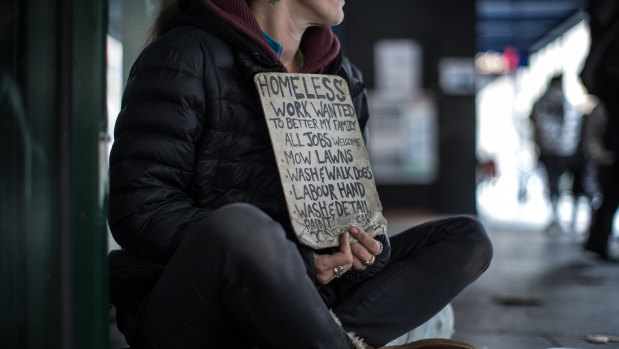 HOMELESS
WORK WANTED
TO BETTER MY FAMILY
ALL JOBS WELCOME
· MOW LAWNS
· WASH & WALK DOGS
· LABOUR HAND
WASH & DETAIL
PAINT